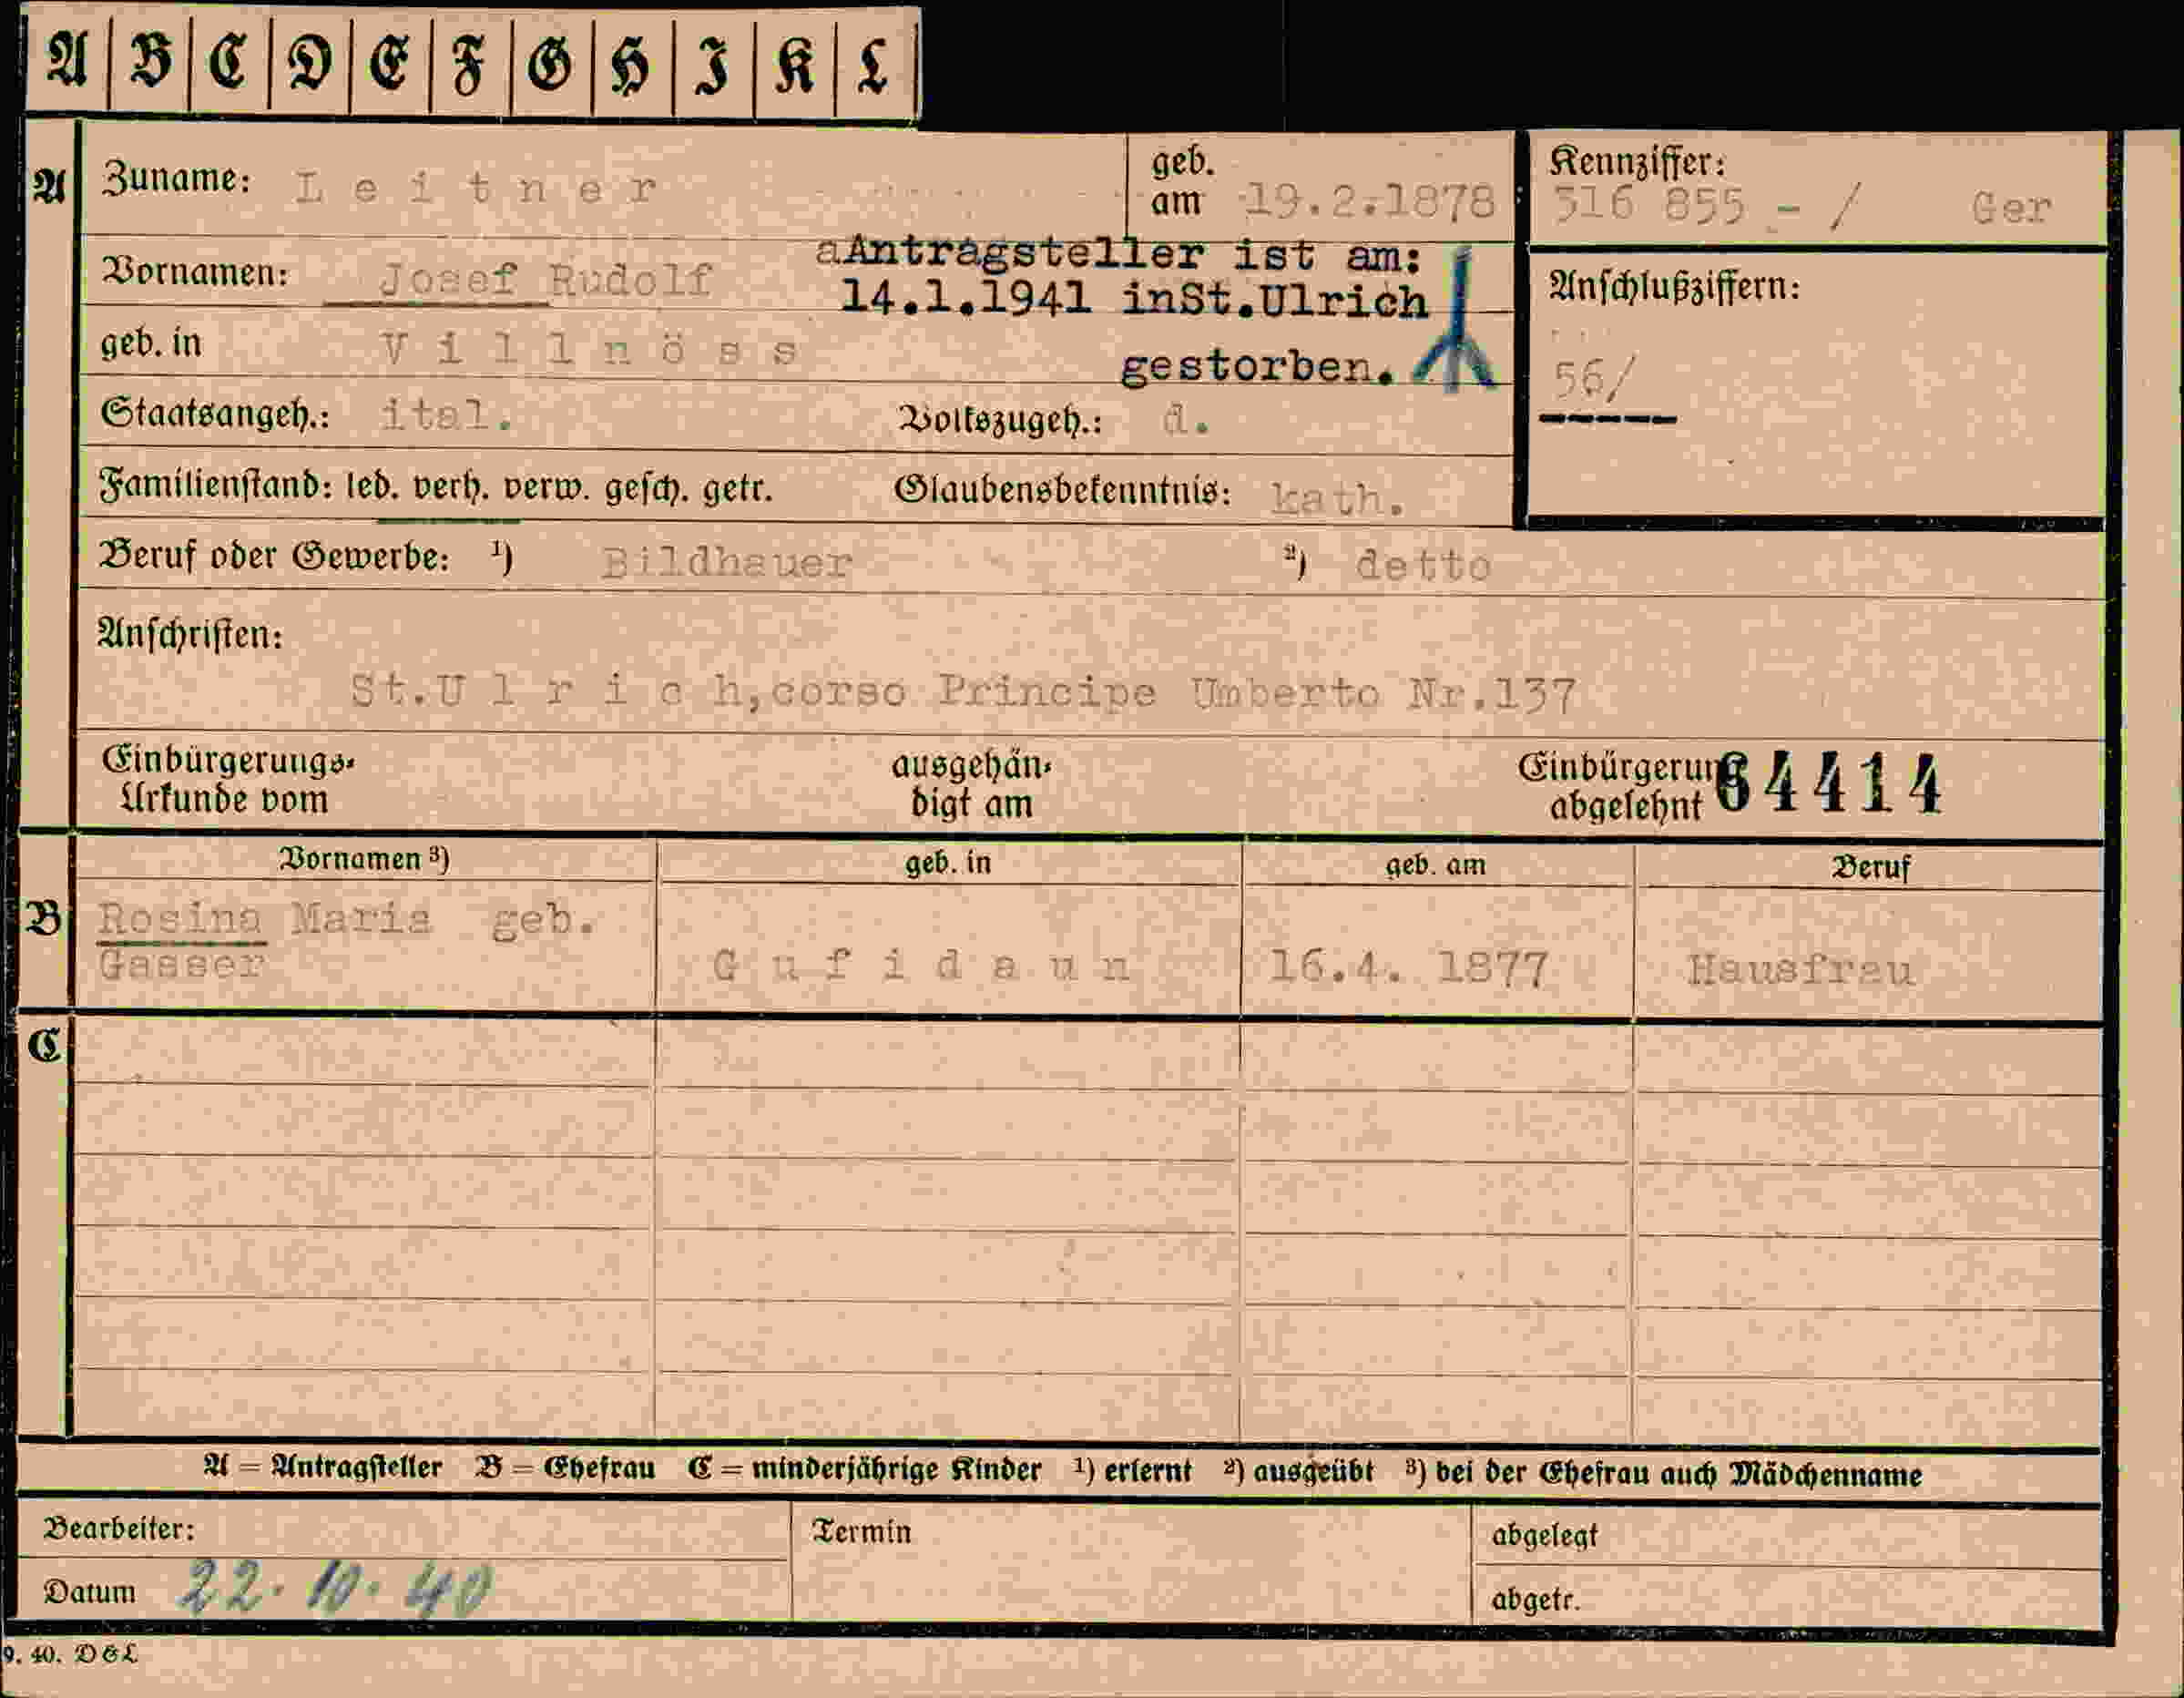 A B C D E F G H I K L
A Zuname: Leitner geb. am 19.2.1878 Kennziffer: 316 855 - / Ger
aAntragsteller ist am:
Vornamen: Josef Rudolf 14.1.1941 inSt.Ulrich Anschlußziffern:
geb. in Villnöss gestorben. 56/
Staatsangeh.: ital. Volkszugeh.: d.
Familienstand: led. verh. verw. gesch. getr. Glaubensbekenntnis: kath.
Beruf oder Gewerbe: ¹) Bildhauer ²) detto
Anschriften:
St.Ulrich,corso Principe Umberto Nr.137
Einbürgerungs- ausgehän- Einbürgerung 64414
Urkunde vom digt am abgelehnt
Vornamen ³) geb. in geb. am Beruf
B Rosina Maria geb.
Gasser Gufidaun 16.4. 1877 Hausfrau
C
A = Antragsteller B = Ehefrau C = minderjährige Kinder ¹) erlernt ²) ausgeübt ³) bei der Ehefrau auch Mädchenname
Bearbeiter: Termin abgelegt
Datum 22. 10. 40 abgetr.
9. 40. D&L